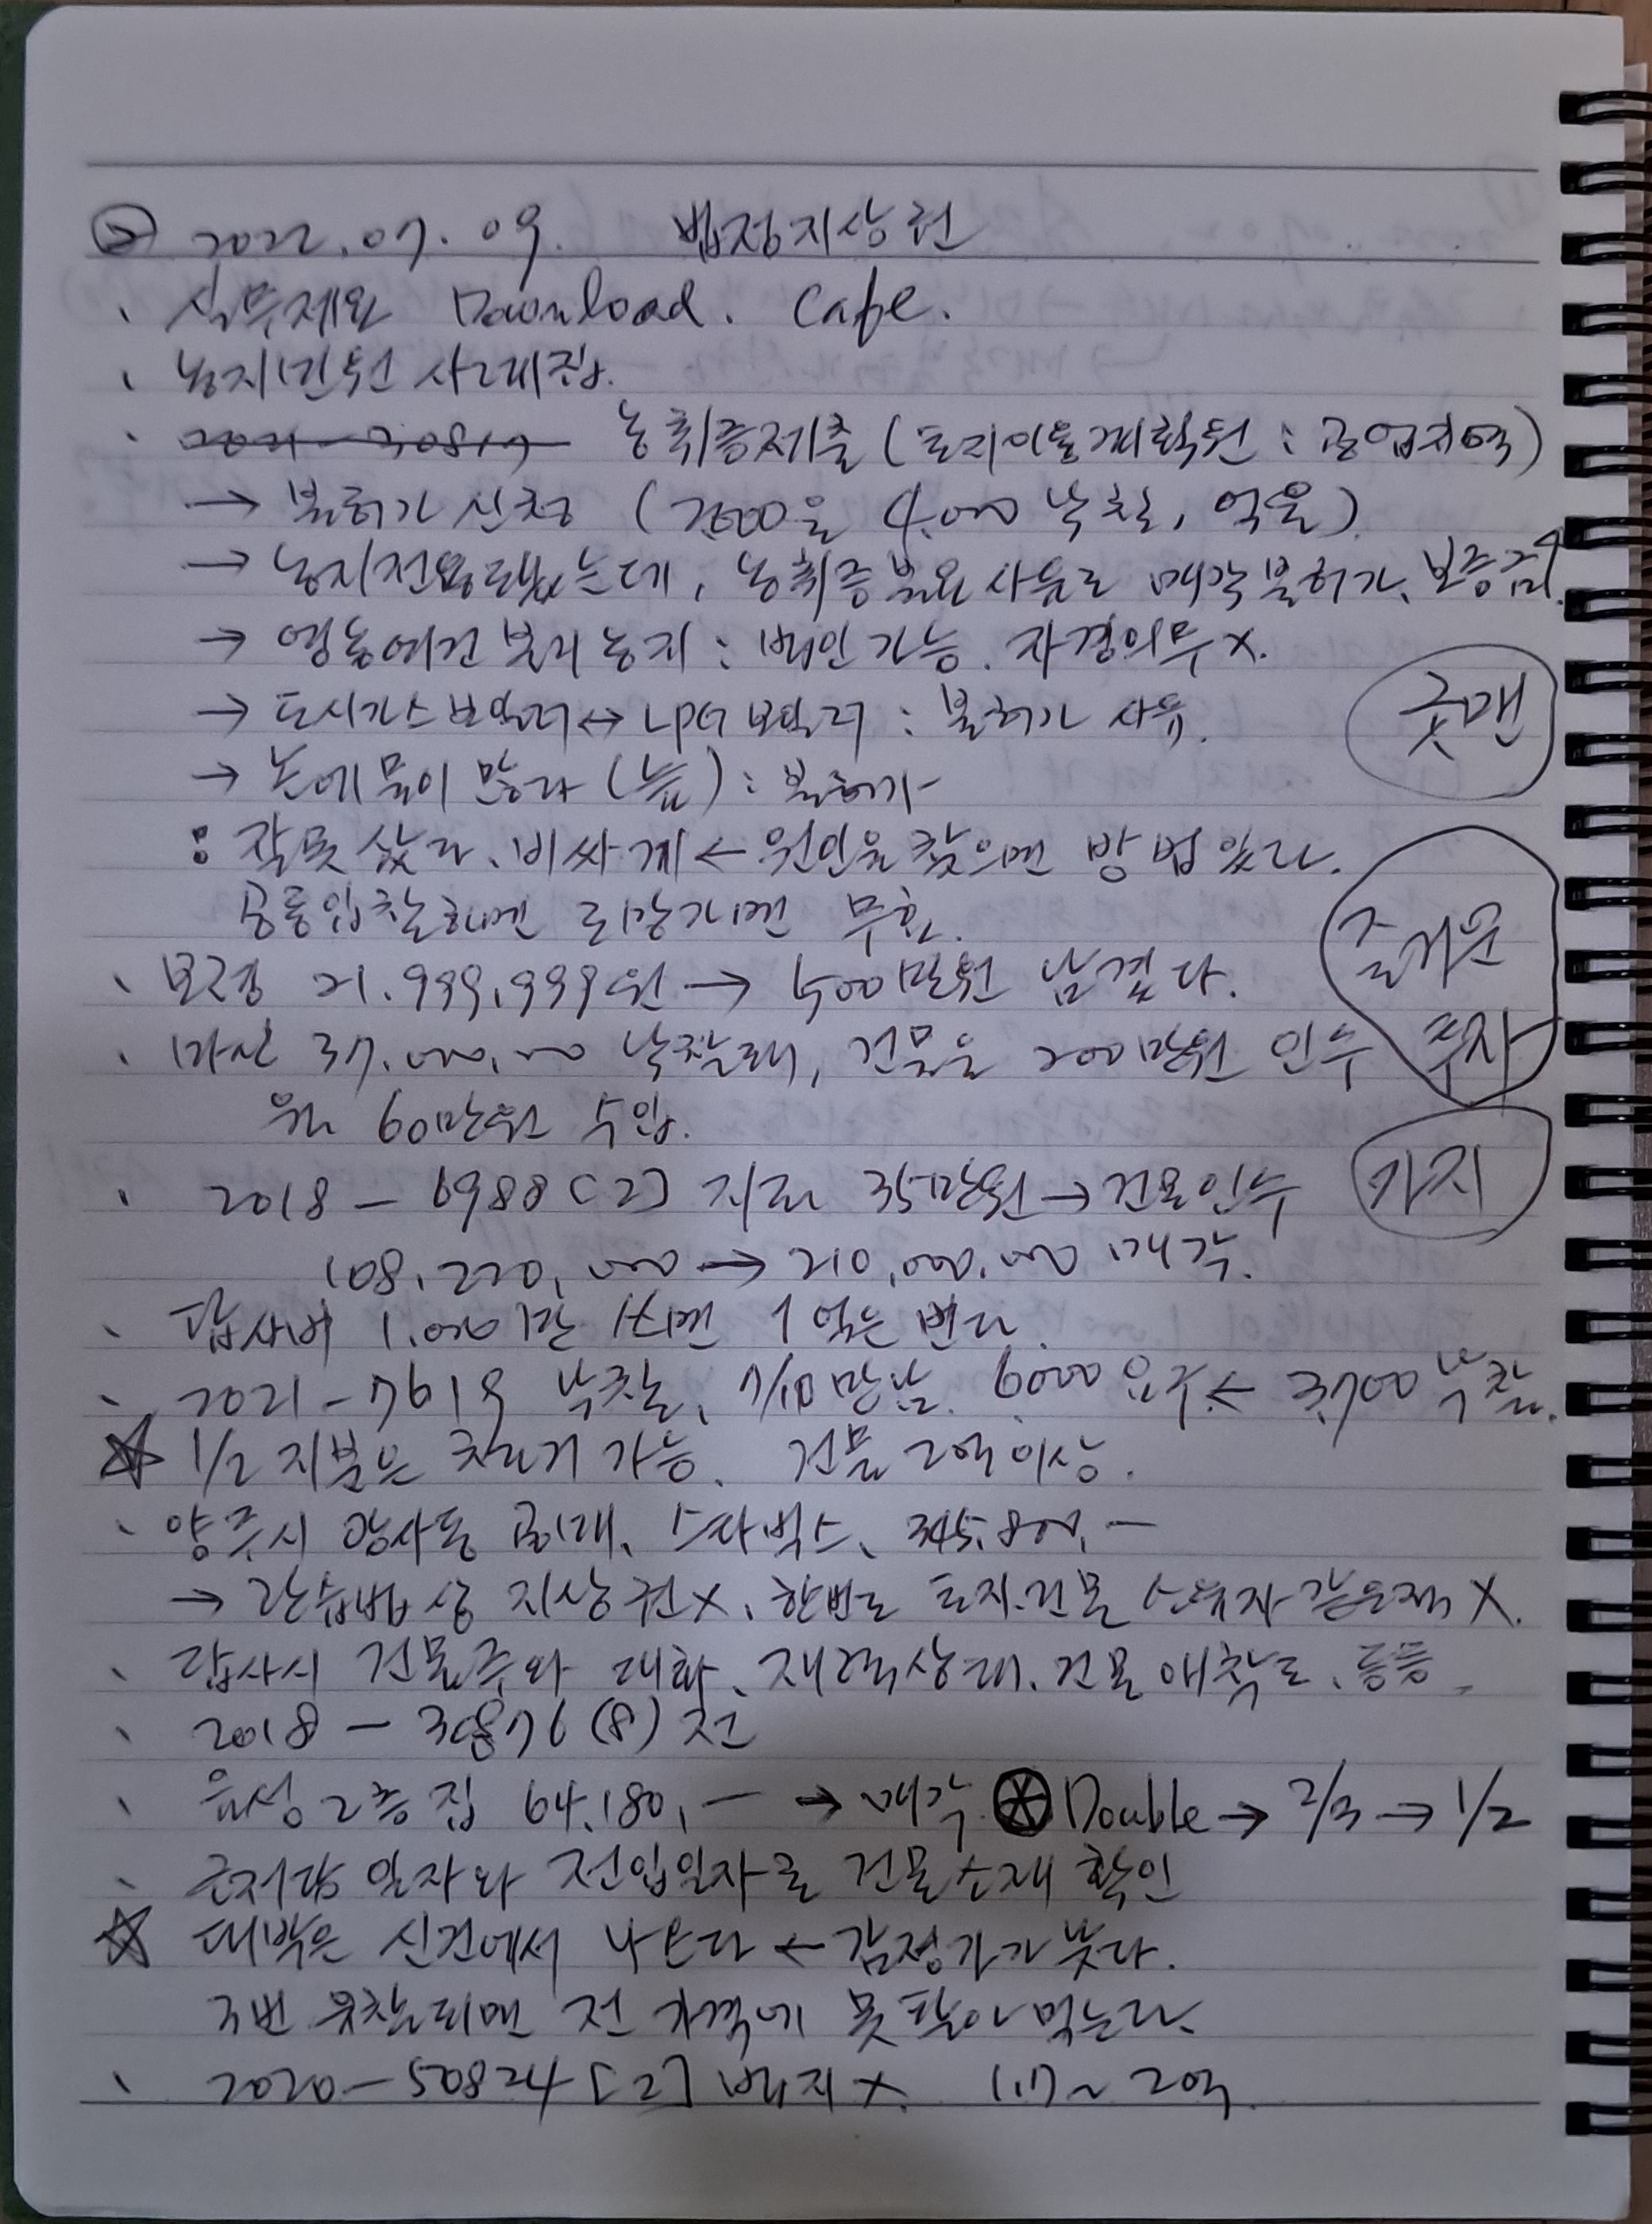 ② 2022.07.09. 법정지상권
· 실무제요 Download. Cafe.
· 농지민원 사례집.
· 2021-30817 농취증제출 (토지이용계획원 : 공업지역)
→ 불허가 신청 (2500을 4,000 낙찰, 억울)
→ 농지전용됐는데, 농취증 불요 사유로 매각불허가, 보증금
→ 영농여건불리농지 : 매입가능. 자경의무 X.
→ 도시가스보일러 ↔ LPG보일러 : 불허가 사유.
굿맨
→ 논에 물이 많다 (늪) : 불허가
: 잘못 샀다, 비싸게 ← 원인을 찾으면 방법있다.
공동입찰하면 도망가면 무효.
· 보령 21,999,999원 → 500만원 남겼다.
즐거운 투자
· 마산 37,000,000 낙찰돼, 건물을 200만원 인수
월 60만원 수입.
· 2018-6988[2] 지료 35만원 → 건물인수
가지
108,220,000 → 210,000,000 매각.
· 답사비 1,000만 쓰면 1억은 번다.
· 2021-7619 낙찰, 7/10 만남. 6000 요구 ← 3,700 낙찰.
☆ 1/2 지분은 철거 가능. 건물 2억이상.
· 양주시 광사동 공매, 스타벅스, 345,800,-
→ 관습법상 지상권 X, 한번도 토지.건물 소유자 같은적 X.
· 답사시 건물주와 대화, 재력상태, 건물 애착도, 등등.
· 2018-30876(8) 전
· 음성 2층집 64,180,- → 매각. ⊛ Double → 2/3 → 1/2
· 근저당 일자와 전입일자로 건물소재 확인
☆ 대박은 신건에서 나온다 ← 감정가가 낮다.
3번 유찰되면 전 가격에 못 팔아 먹는다.
· 2020-50824[2] 배지 X. 1.7~2억.